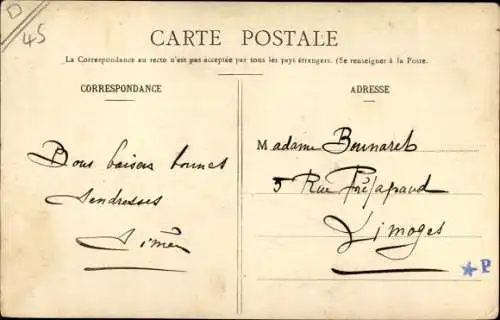 D
45
CARTE POSTALE
La Correspondance au recto n'est pas acceptée par tous les pays étrangers. (Se renseigner à la Poste.
CORRESPONDANCE
ADRESSE
Bons baisers bonnes
tendresses
Simée
Madame Bounareb
5 Rue Préjapaud
Limoges
P